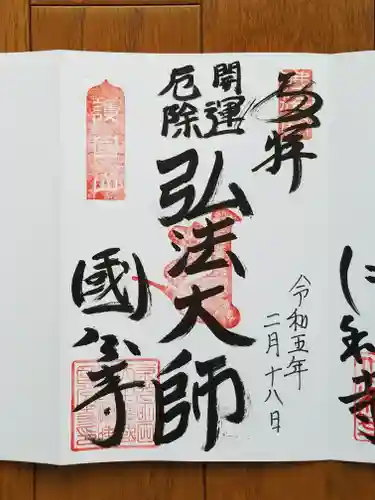 奉拝
開運
厄除
弘法大師
令和五年
二月十八日
國分寺
護國山
仁和寺